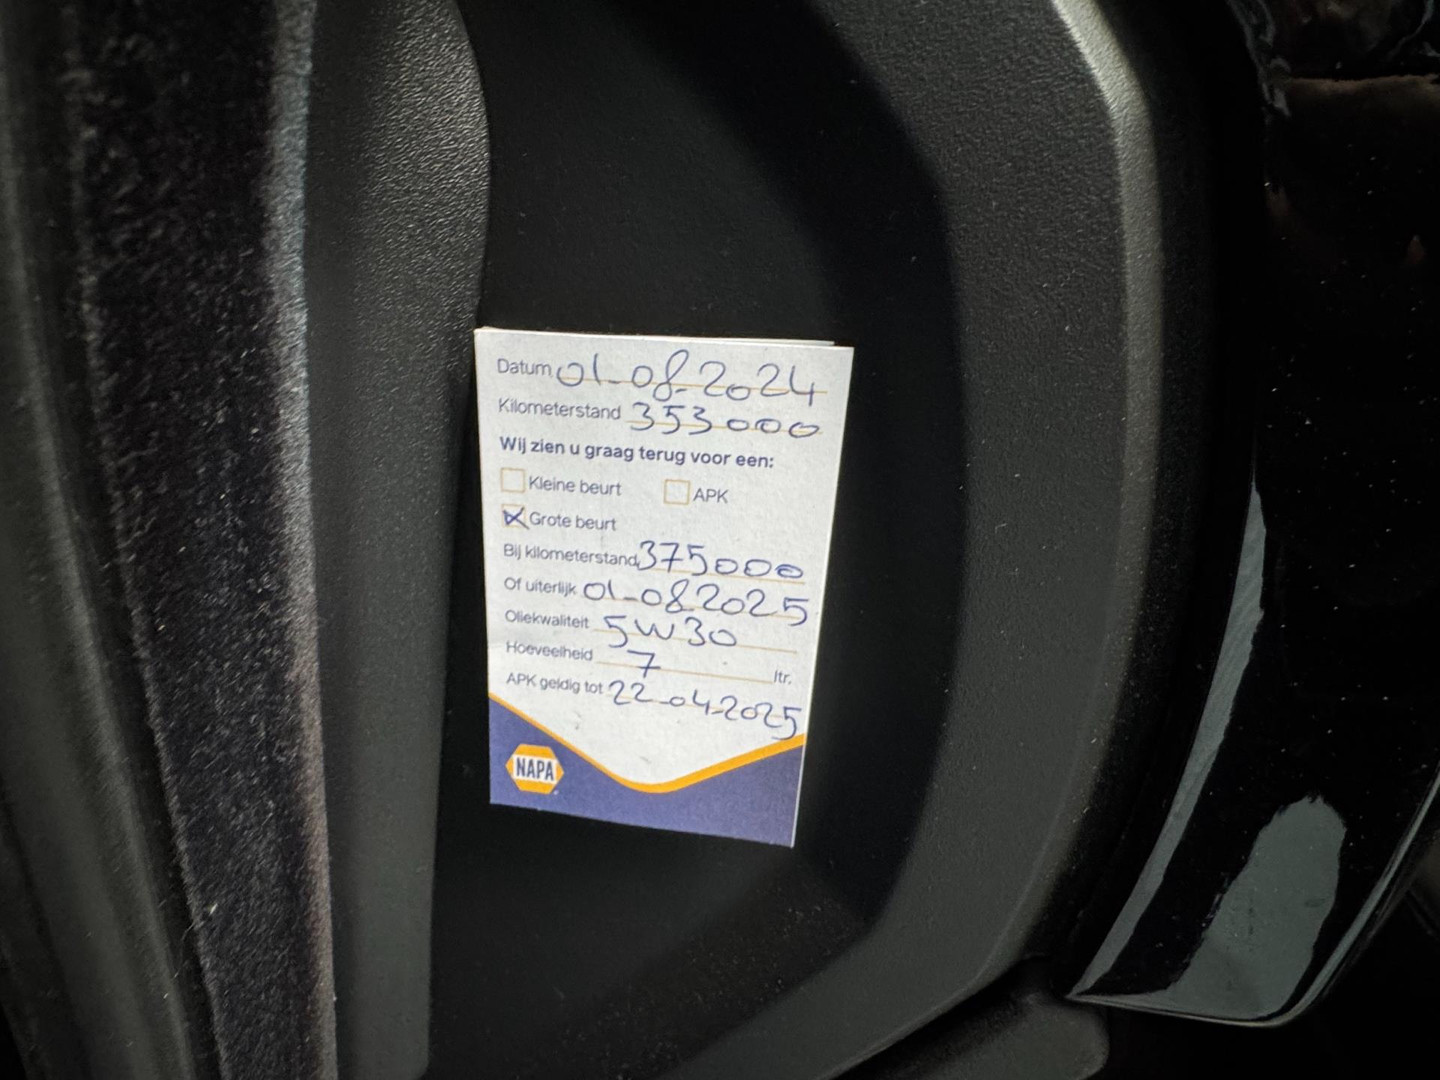 Datum 01-08-2024
Kilometerstand 353000
Wij zien u graag terug voor een:
Kleine beurt APK
Grote beurt
Bij kilometerstand 375000
Of uiterlijk 01-08-2025
Oliekwaliteit 5W30
Hoeveelheid 7 ltr.
APK geldig tot 22-04-2025
NAPA